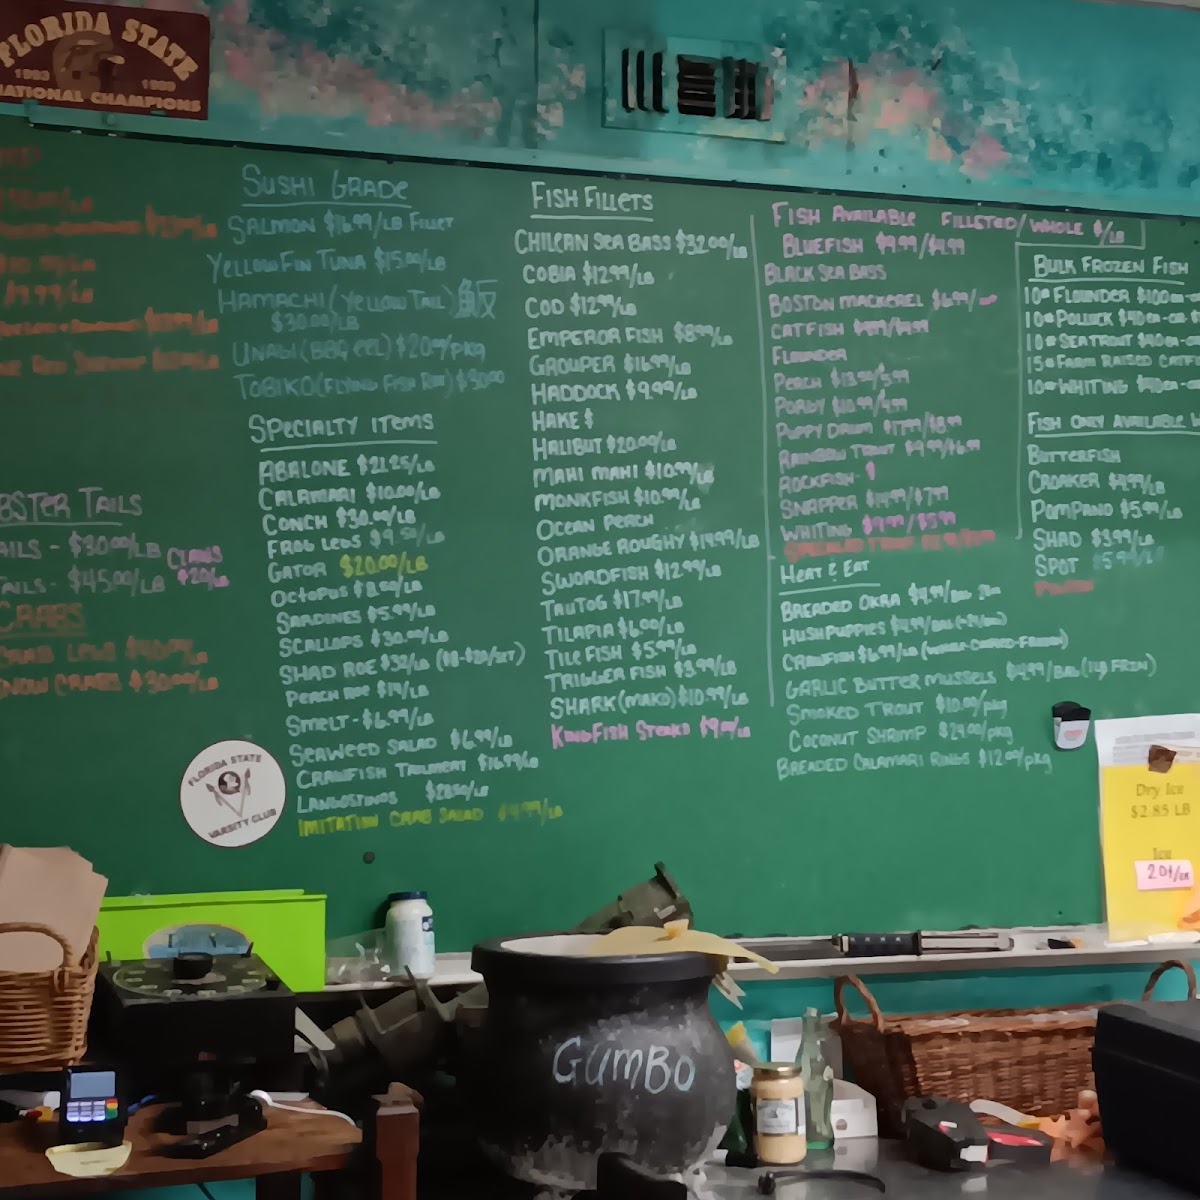 FLORIDA STATE
1993 1999
NATIONAL CHAMPIONS
BSTER TAILS
AILS - $30.00/LB
CLAWS
$20/LB
TAILS - $45.00/LB
CRABS
CRAB LEGS
SNOW CRABS $30.00/LB
SUSHI GRADE
SALMON $16.99/LB FILLET
YELLOWFIN TUNA $15.00/LB
HAMACHI (YELLOW TAIL)
$30.00/LB
UNAGI (BBQ EEL) $20.00/PKG
TOBIKO (FLYING FISH ROE) $30.00
SPECIALTY ITEMS
ABALONE $21.25/LB
CALAMARI $10.00/LB
CONCH $30.00/LB
FROG LEGS $9.50/LB
GATOR $20.00/LB
OCTOPUS $8.50/LB
SARDINES $5.99/LB
SCALLOPS $30.00/LB
SHAD ROE $32/LB
PERCH ROE $14/LB
SMELT - $6.99/LB
SEAWEED SALAD $6.99/LB
CRAWFISH TAILMEAT $16.99/LB
LANGOSTINOS
IMITATION CRAB SALAD $4.99/LB
FLORIDA STATE
VARSITY CLUB
FISH FILLETS
CHILEAN SEA BASS $32.00/LB
COBIA $12.99/LB
COD $12.99/LB
EMPEROR FISH $8.99/LB
GROUPER $16.99/LB
HADDOCK $9.99/LB
HAKE $
HALIBUT $20.00/LB
MAHI MAHI $10.99/LB
MONKFISH $10.99/LB
OCEAN PERCH
ORANGE ROUGHY $14.99/LB
SWORDFISH $12.99/LB
TAUTOG $17.99/LB
TILAPIA $6.00/LB
TILE FISH $5.99/LB
TRIGGER FISH $3.99/LB
SHARK (MAKO) $10.99/LB
KINGFISH STEAKS $9.00/LB
FISH AVAILABLE FILLETED/WHOLE $/LB
BLUEFISH $9.99/$4.99
BLACK SEA BASS
BOSTON MACKEREL $6.99/
CATFISH
FLOUNDER
PERCH $13.99/5.99
PORGY $10.99/4.99
PUPPY DRUM $17.99/$8.99
RAINBOW TROUT $9.99/$6.99
ROCKFISH-
SNAPPER $14.99/$7.99
WHITING $9.99/$5.99
HEAT & EAT
BREADED OKRA $4.99/BAG
HUSHPUPPIES $4.99/BAG
CRAWFISH $6.99/LB (WHOLE-COOKED-FROZEN)
GARLIC BUTTER MUSSELS $4.99/BAG (1LB FRZN)
SMOKED TROUT $10.00/PKG
COCONUT SHRIMP $24.00/PKG
BREADED CALAMARI RINGS $12.00/PKG
BULK FROZEN FISH
10# FLOUNDER $100.00
10# POLLOCK
10# SEA TROUT
15# FARM RAISED CATF
10# WHITING
FISH ONLY AVAILABLE W
BUTTERFISH
CROAKER $4.99/LB
POMPANO $5.99/LB
SHAD $3.99/LB
SPOT $5.99/LB
Dry Ice
$2.85 LB
Ice
20¢/LB
GUMBO